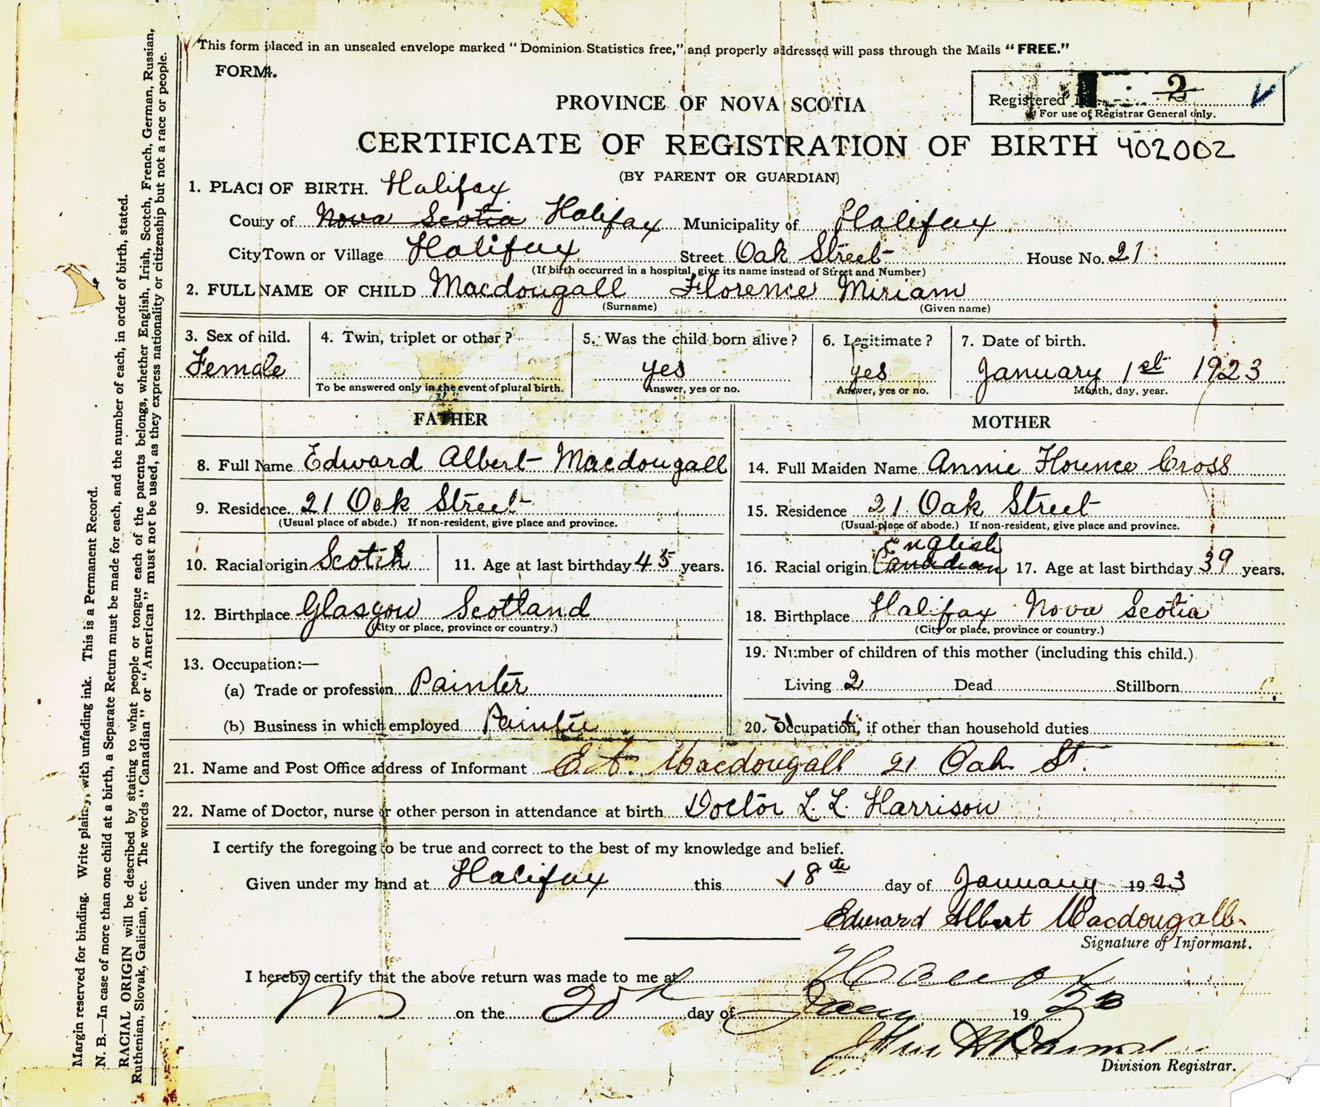 This form placed in an unsealed envelope marked "Dominion Statistics free," and properly addressed will pass through the Mails "FREE."
FORM 4.
PROVINCE OF NOVA SCOTIA
Registered 2
For use of Registrar General only.
CERTIFICATE OF REGISTRATION OF BIRTH 402002
(BY PARENT OR GUARDIAN)
1. PLACE OF BIRTH. Halifax
County of Nova Scotia Halifax Municipality of Halifax
City Town or Village Halifax Street Oak Street House No. 21
(If birth occurred in a hospital, give its name instead of Street and Number)
2. FULL NAME OF CHILD Macdougall Florence Miriam
(Surname) (Given name)
3. Sex of child. 4. Twin, triplet or other? 5. Was the child born alive? 6. Legitimate? 7. Date of birth.
Female yes yes January 1st 1923
To be answered only in the event of plural birth. Answer, yes or no. Answer, yes or no. Month, day, year.
FATHER MOTHER
8. Full Name Edward Albert Macdougall 14. Full Maiden Name Annie Florence Cross
9. Residence 21 Oak Street 15. Residence 21 Oak Street
(Usual place of abode.) If non-resident, give place and province. (Usual place of abode.) If non-resident, give place and province.
10. Racial origin Scotch 11. Age at last birthday 45 years. 16. Racial origin English Canadian 17. Age at last birthday 39 years.
12. Birthplace Glasgow Scotland 18. Birthplace Halifax Nova Scotia
(City or place, province or country.) (City or place, province or country.)
13. Occupation:— 19. Number of children of this mother (including this child.)
(a) Trade or profession Painter Living 2 Dead Stillborn
(b) Business in which employed Painter 20. Occupation, if other than household duties
21. Name and Post Office address of Informant E. A. Macdougall 21 Oak St.
22. Name of Doctor, nurse or other person in attendance at birth Doctor L. L. Harrison
I certify the foregoing to be true and correct to the best of my knowledge and belief.
Given under my hand at Halifax this 18th day of January 1923
Edward Albert Macdougall
Signature of Informant.
I hereby certify that the above return was made to me at
on the 20th day of Jany 1923
Division Registrar.
Margin reserved for binding. Write plainly, with unfading ink. This is a Permanent Record.
N. B.—In case of more than one child at a birth, a Separate Return must be made for each, and the number of each, in order of birth, stated.
RACIAL ORIGIN will be described by stating to what people or tongue each of the parents belongs, whether English, Irish, Scotch, French, German, Russian,
Ruthenian, Slovak, Galician, etc. The words "Canadian" or "American" must not be used, as they express nationality or citizenship but not a race or people.